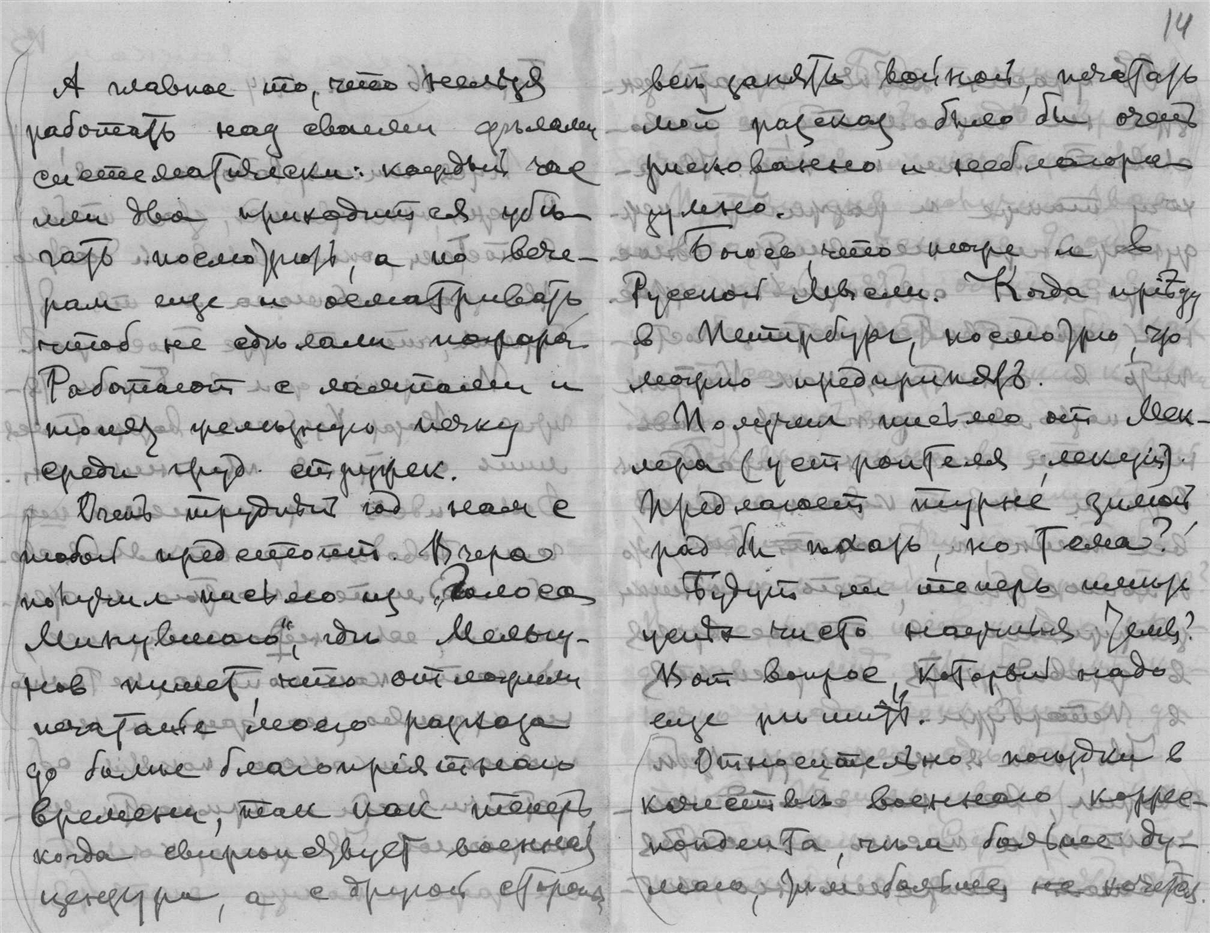 14
А главное то, что нельзя
работать над своими дѣлами
систематически: каждый час
или два приходится убѣ-
гать посмотрѣть, а по вече-
рам еще и осматривать
чтоб не сдѣлали пожара.
Работают с лампами и
топят желѣзную печку
среди груд стружек.
Очень трудный год нам с
тобой предстоит. Вчера
получил письмо из „Голоса
Минувшаго", гдѣ Мельгу-
нов пишет что отложили
печатанье моего разсказа
до болѣе благопріятнаго
времени, так как теперь,
когда свирѣпствует военная
цензура, а с другой стороны
всѣ заняты войной, печатать
мой разсказ было бы очень
рискованно и неблагора-
зумно.
Боюсь, что тоже и в
Русской Мысли. Когда пріѣду
в Петербург, посмотрю, что
можно предпринять.
Получил письмо от Мек-
лера (устроителя лекцій).
Предлагает турнэ зимой,
рад бы ѣхать, но тема?
Будут ли теперь
чисто научныя темы?
Вот вопрос, который надо
еще рѣшить.
Относительно поѣздки в
качествѣ военнаго коррес-
пондента, чѣм больше ду-
маю, тѣм больше не хочется.